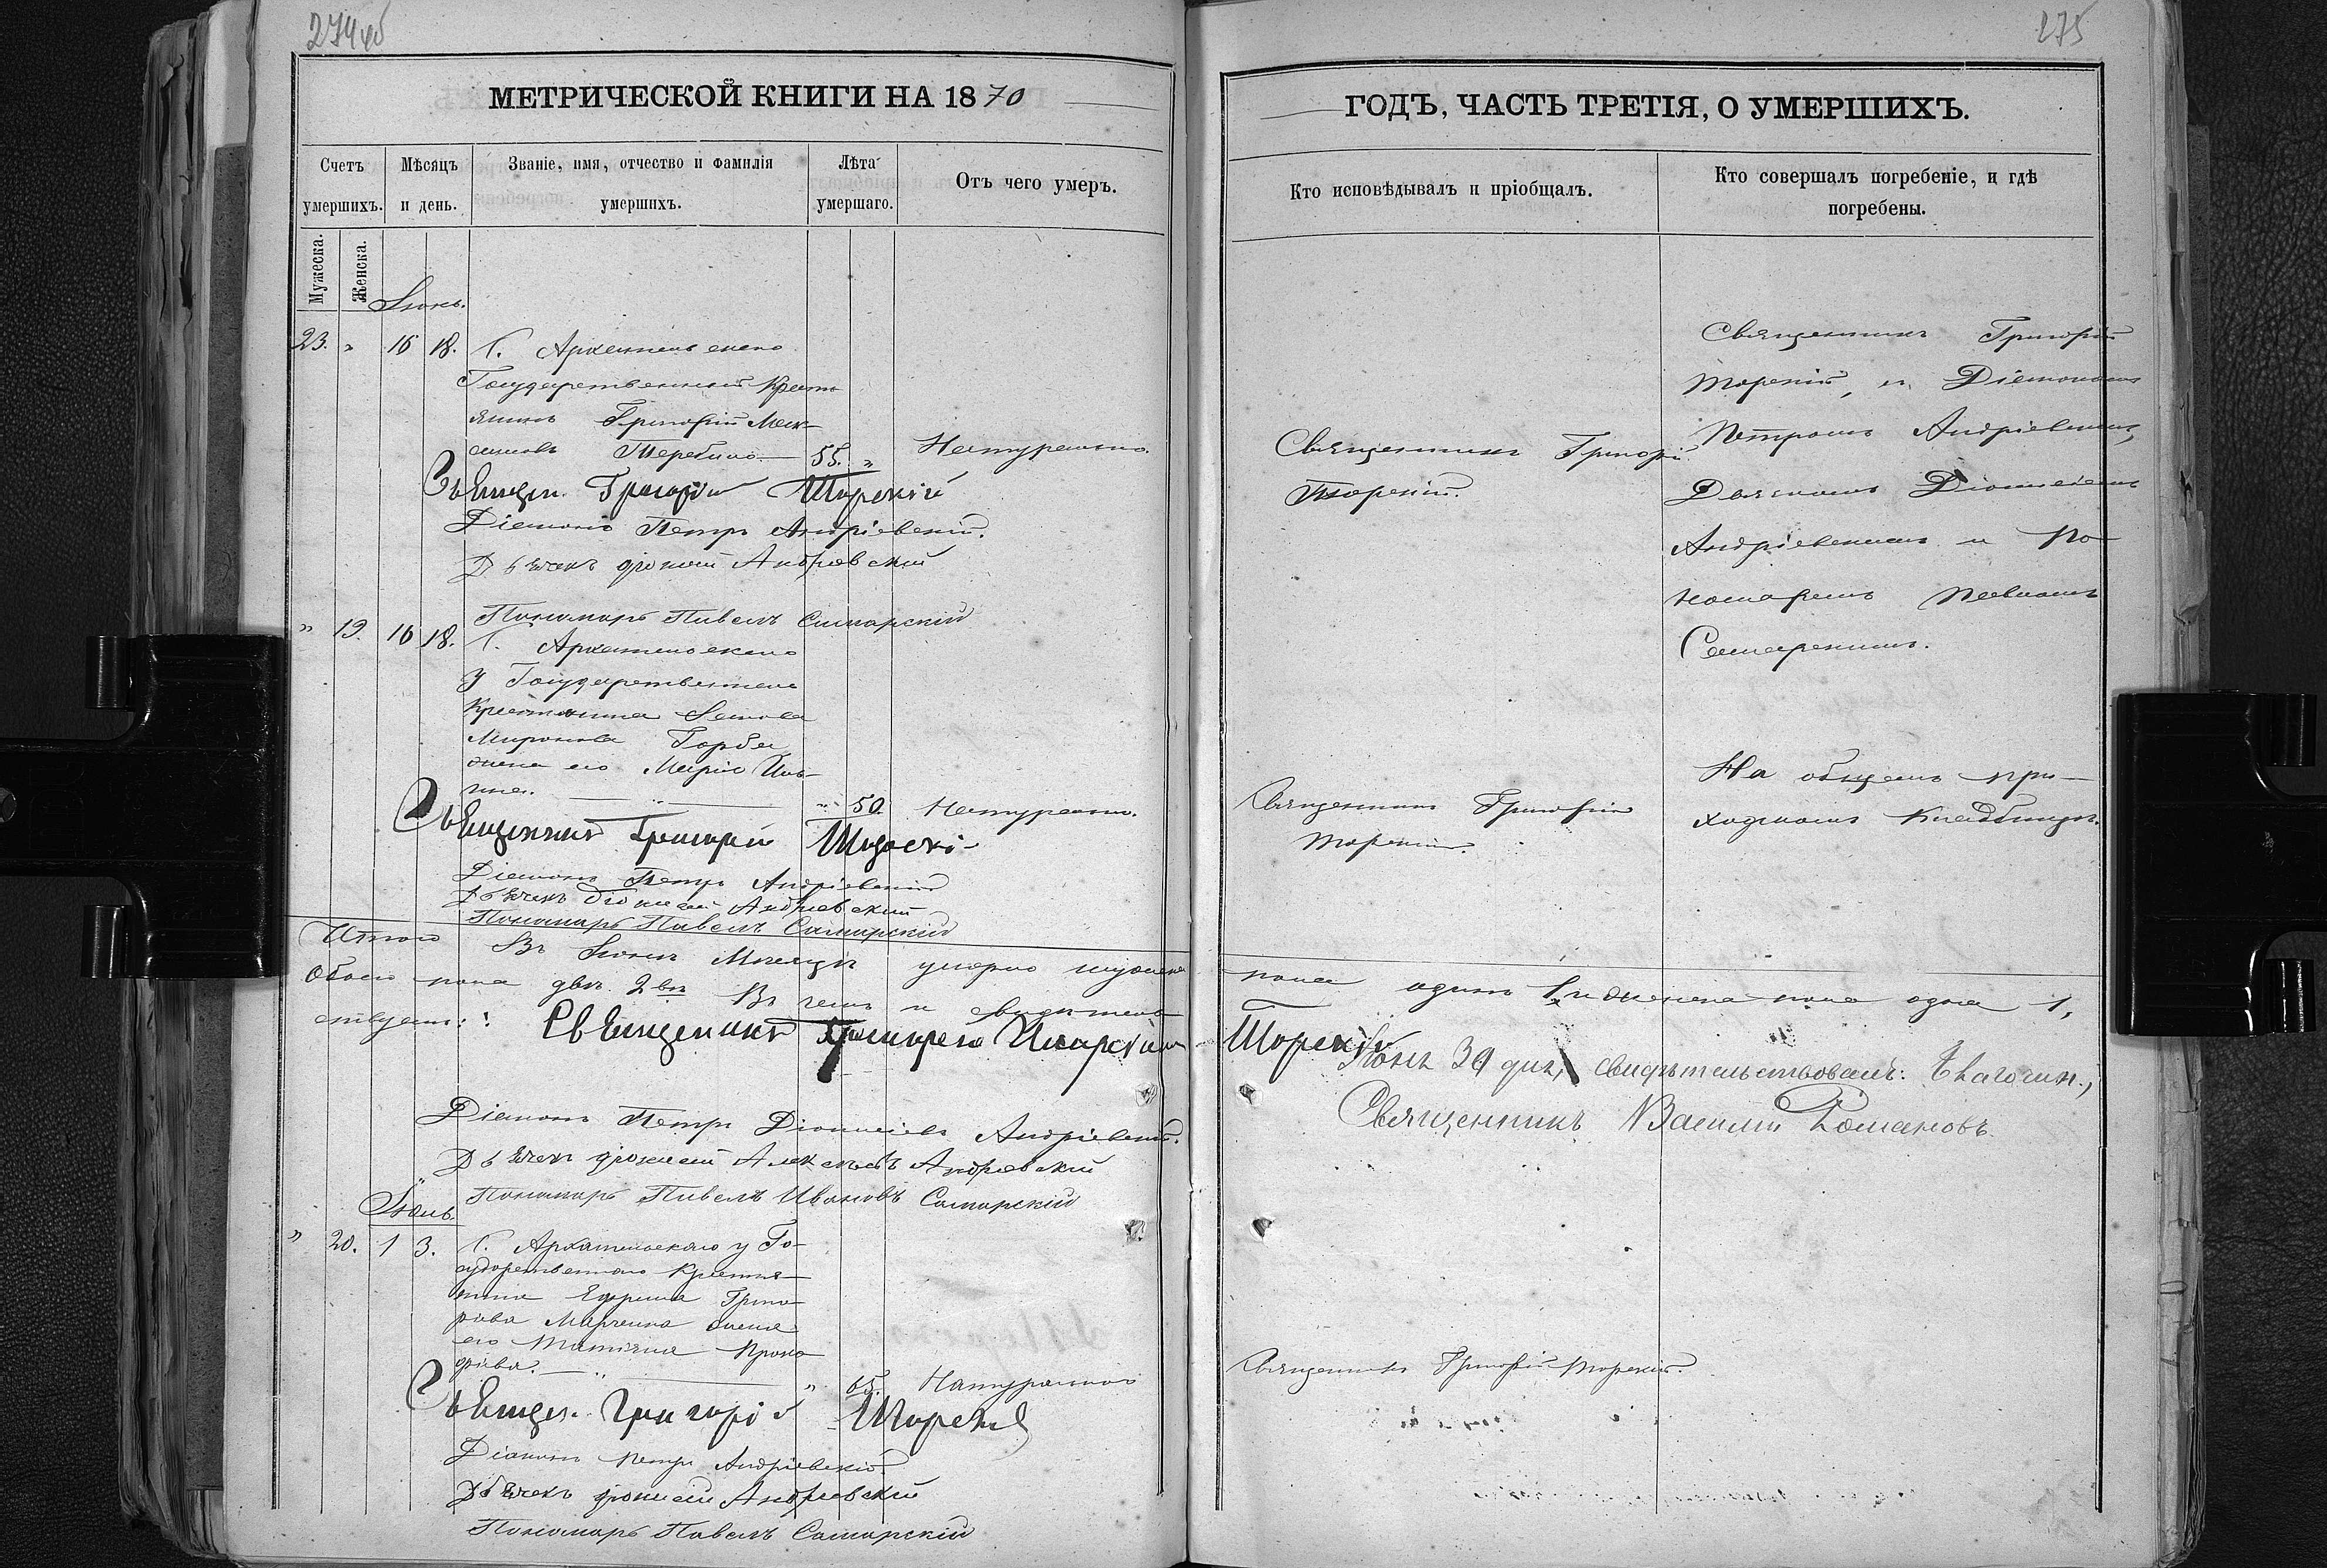 274об
МЕТРИЧЕСКОЙ КНИГИ НА 1870
Счетъ умершихъ.
Мѣсяцъ и день.
Званіе, имя, отчество и фамилія умершихъ.
Лѣта умершаго.
Отъ чего умеръ.
Мужеска.
Женска.
Іюнь.
23. " 16 18. С. Архангельскаго
Государственный Кресть
янинъ Григорій Мак-
симовъ 55. " Натурально.
Священ. Григорій Торскій
Діаконъ Петръ Андріевскій.
Дьячекъ Діонисій Андріевскій
Пономарь Павелъ Самарскій
" 19. 16 18. С. Архангельскаго
у Государственнаго
Крестьянина
Миронова Горба
жена его Марія Ив-
" 50. Натурально.
Священникъ Григорій Торскій
Діаконъ Петръ Андріевскій
Дьячекъ Діонисій Андріевскій
Пономарь Павелъ Самарскій
Итого Въ Іюнѣ Мѣсяцѣ умерло мужеска
Обоего пола двѣ. 2вѣ Въ чемъ и свидѣтель
ствуемъ:
Священникъ Григорій
Діаконъ Петръ Діонисіевъ Андріевскій.
Дьячекъ Діонисій Алексѣевъ Андріевскій
Пономарь Павелъ Ивановъ Самарскій
Іюль.
" 20. 1 3. С. Архангельскаго у Го-
сударственнаго Крестья-
нина Ефрема Григо-
рьева Марченка жена
его Татіяна Проко
фіева. " 65. Натурально
Священ. Григорій Торскій
Діаконъ Петръ Андріевскій
Дьячекъ Діонисій Андріевскій
Пономарь Павелъ Самарскій
275
ГОДЪ, ЧАСТЬ ТРЕТІЯ, О УМЕРШИХЪ.
Кто исповѣдывалъ и пріобщалъ.
Кто совершалъ погребеніе, и гдѣ погребены.
Священникъ Григорій
Торскій.
Священникъ Григорій
Торскій, и Діакономъ
Петромъ Андріевскимъ,
Дьячкомъ Діонисіемъ
Андріевскимъ и По-
номаремъ Павломъ
Самарскимъ.
Священникъ Григорій
Торскій.
На общемъ при-
ходскомъ Кладбищѣ.
пола одинъ 1, и женска пола одна 1,
Торскій
Іюня 30 дня, свидѣтельствовалъ: Благочин.,
Священникъ Василій Романовъ.
Священникъ Григорій Торскій